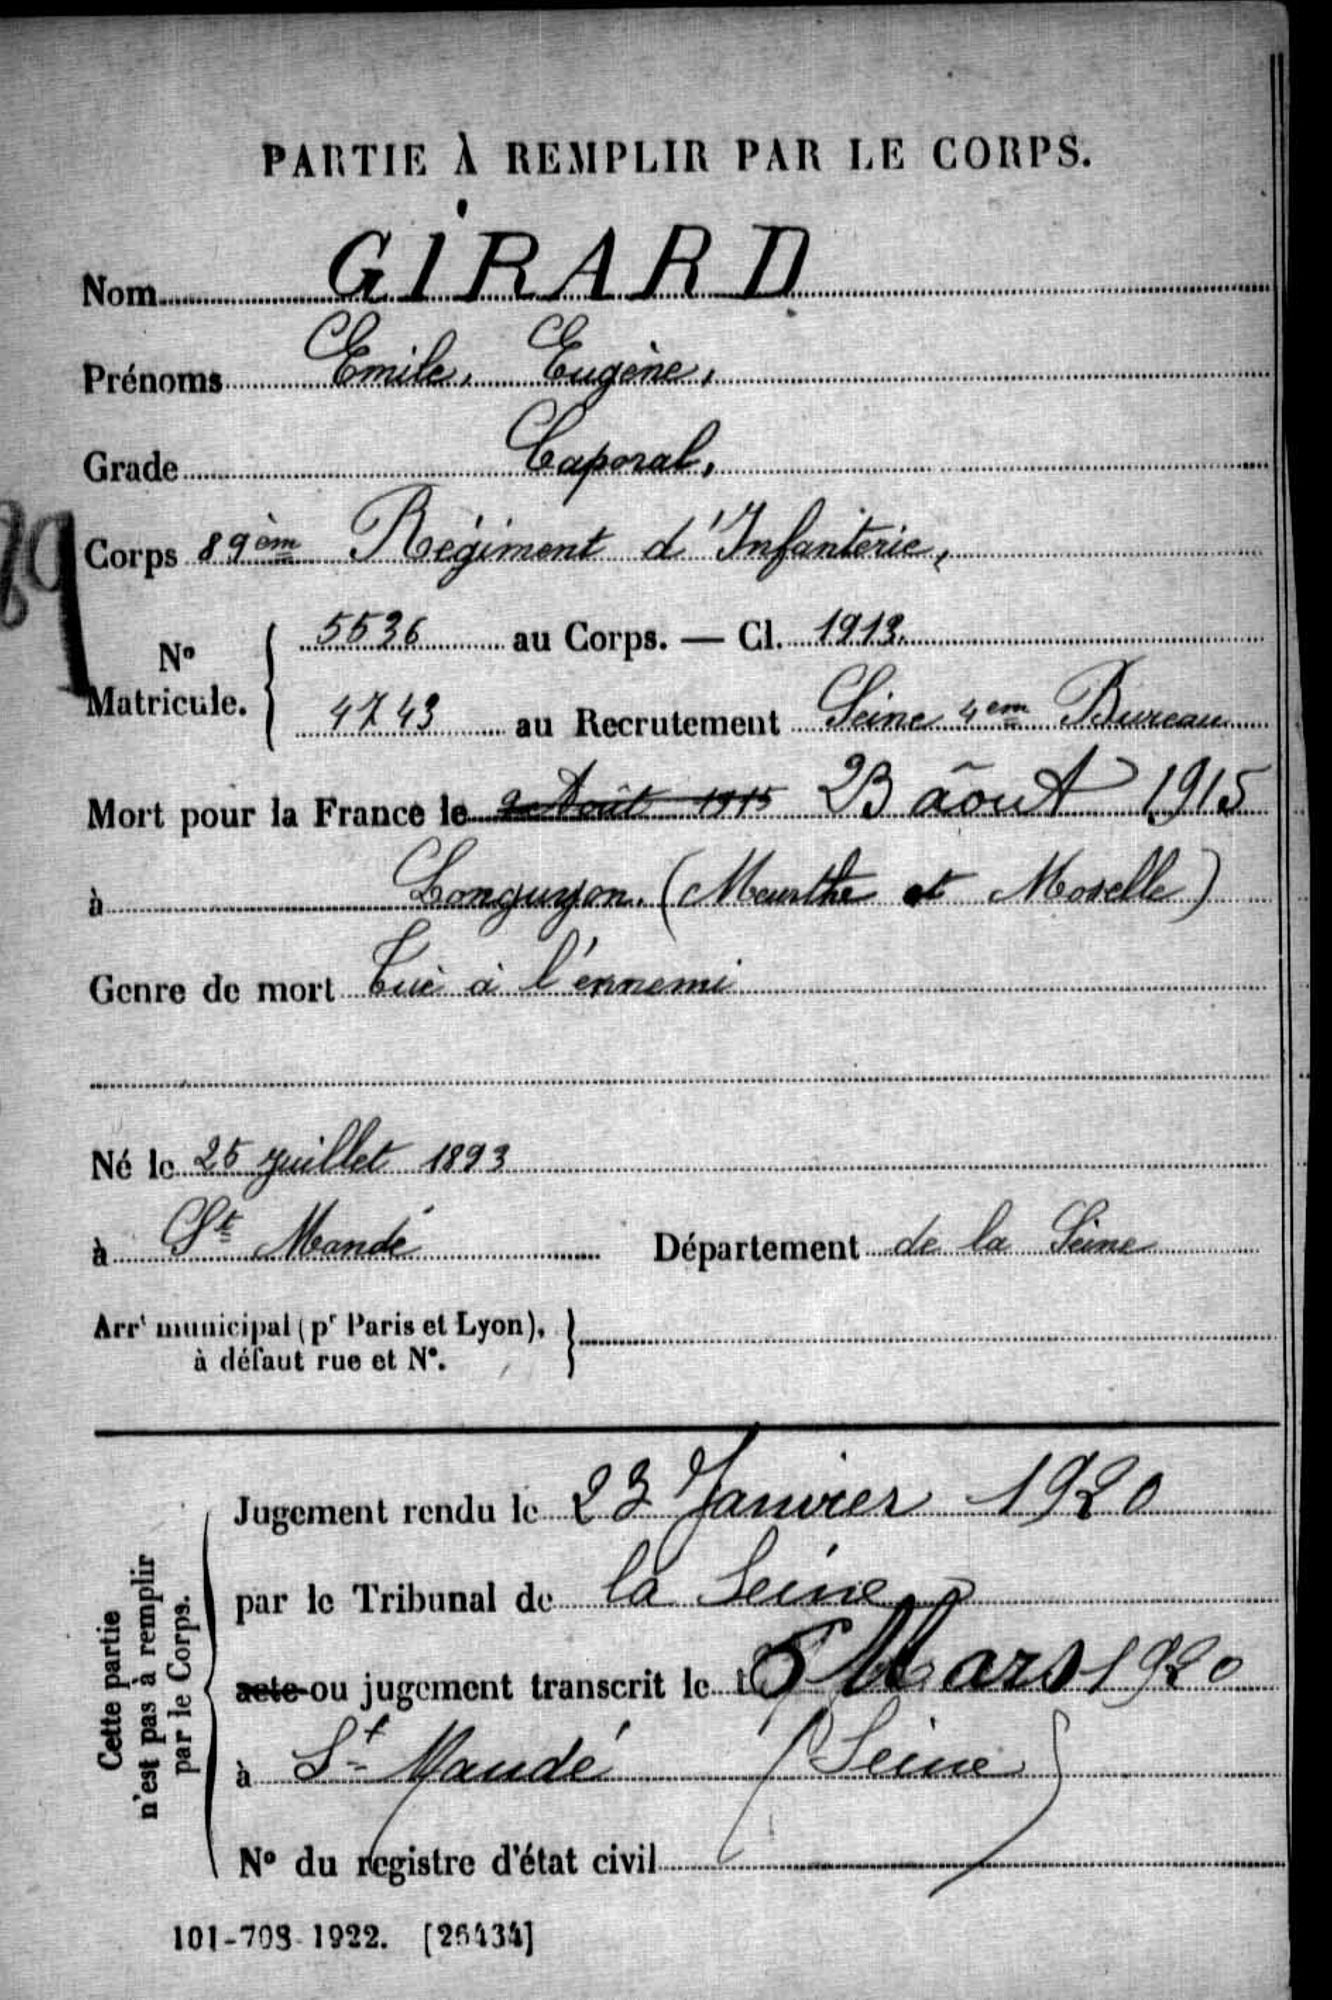 PARTIE À REMPLIR PAR LE CORPS.
Nom GIRARD
Prénoms Emile, Eugène,
Grade Caporal,
89
Corps 89èm Régiment d'Infanterie,
N° Matricule. { 5536 au Corps. — Cl. 1913.
4743 au Recrutement Seine 4em Bureau
Mort pour la France le Août 1915 23 août 1915
à Longuyon. (Meurthe et Moselle)
Genre de mort Tué à l'ennemi
Né le 25 juillet 1893
à St Mandé Département de la Seine
Arrt municipal (pr Paris et Lyon), }
à défaut rue et N°.
Cette partie
n'est pas à remplir
par le Corps.
Jugement rendu le 23 Janvier 1920
par le Tribunal de la Seine
acte ou jugement transcrit le 5 Mars 1920
à St Mandé (Seine)
N° du registre d'état civil
101-708-1922. [26434]